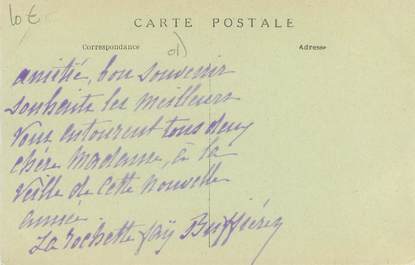 10 €
CARTE POSTALE
Correspondance
01)
Adresse
amitié, bon souvenir
Souhaits les meilleurs
Vous entourent tous deux
chère Madame, à la
veille de cette nouvelle
année
La Rochette Buffières